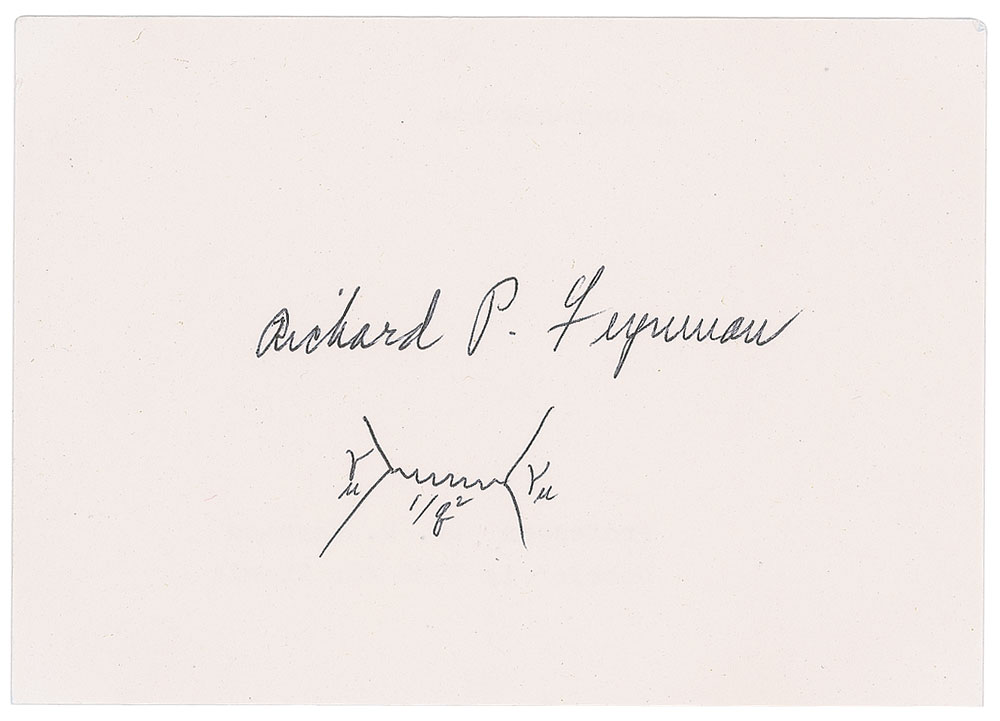 Richard P. Feynman
γμ 1/q² γμ